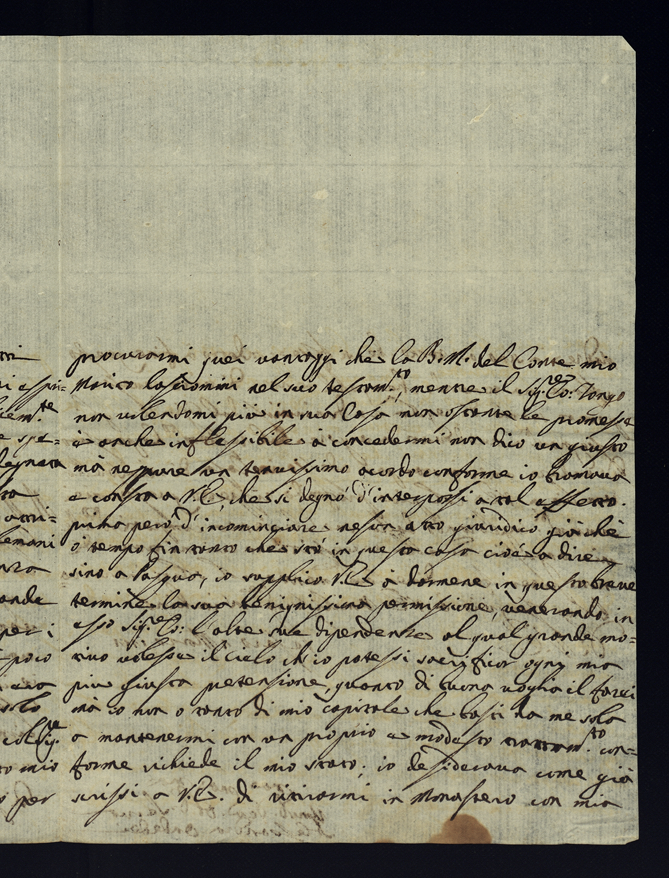 procurarmi quei vantaggi che la B.M. del Conte mio
Marito lasciommi nel suo testam.to, mentre il Sig.r Co: Tongo
non volendomi più in sua Casa non ostante le promesse
è anche inflessibile à concedermi non dico un giusto
mà neppure un tenuissimo acordo conforme io bramava
e consta a V.E. che si degnò d'interporsi a tal effetto.
prima però d'incominciare nesun atto giuridico già che
ò tempo fin tanto che stò in questa casa cioè a dire
sino a Pasqua, io supplico V.E. à darmene in questo breve
termine la sua benignissima permissione, venerando in
esso Sig.r Co: l'alte sue dipendenze al qual grande mo=
tivo volesse il cielo ch'io potessi sacrificar ogni mia
più giusta pretensione, quanto di buona voglia il farei
mà io non ò tanto di mio capitale che basti da me sola
a mantenermi con un proprio e modesto trattam.to con=
forme richiede il mio stato; io desiderava come già
scrissi a V.E. di ritirarmi in Monastero con mia